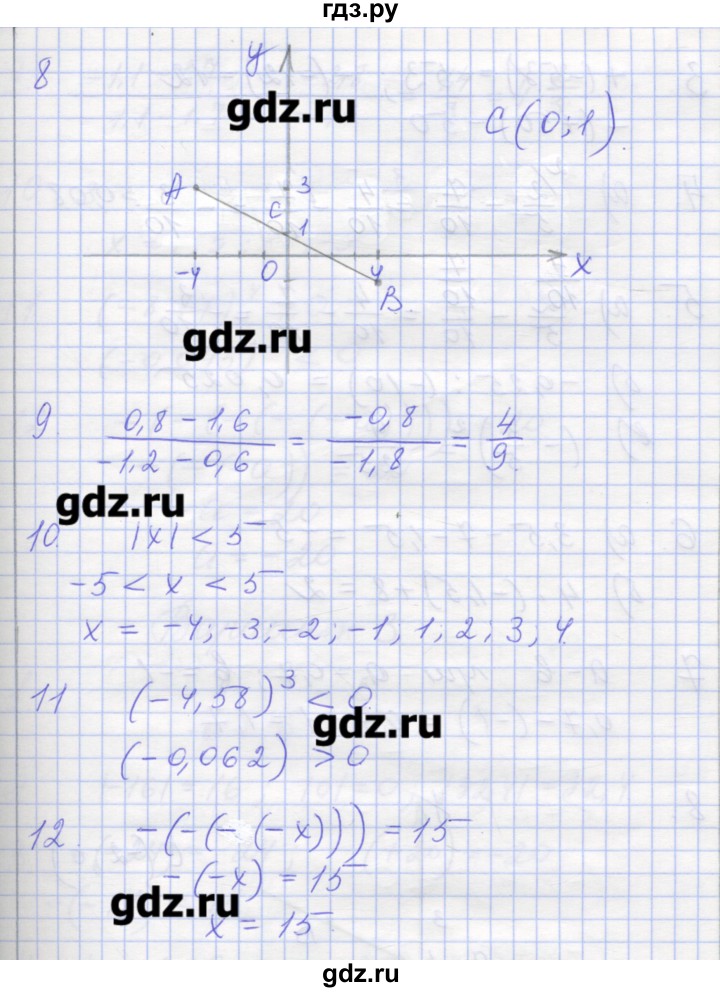 гдз.ру
8
y
gdz.ru
C(0;1).
A
3
C
1
-4
0
4
x
B
gdz.ru
9. (0,8 - 1,6)/(-1,2 - 0,6) = (-0,8)/(-1,8) = 4/9.
gdz.ru
10. |x| < 5
-5 < x < 5
x = -4; -3; -2; -1; 1; 2; 3, 4.
11 (-4,58)³ < 0.
gdz.ru
(-0,062) > 0
12. -(-(-(-x))) = 15
-(-x) = 15
gdz.ru
x = 15.
gdz.ru